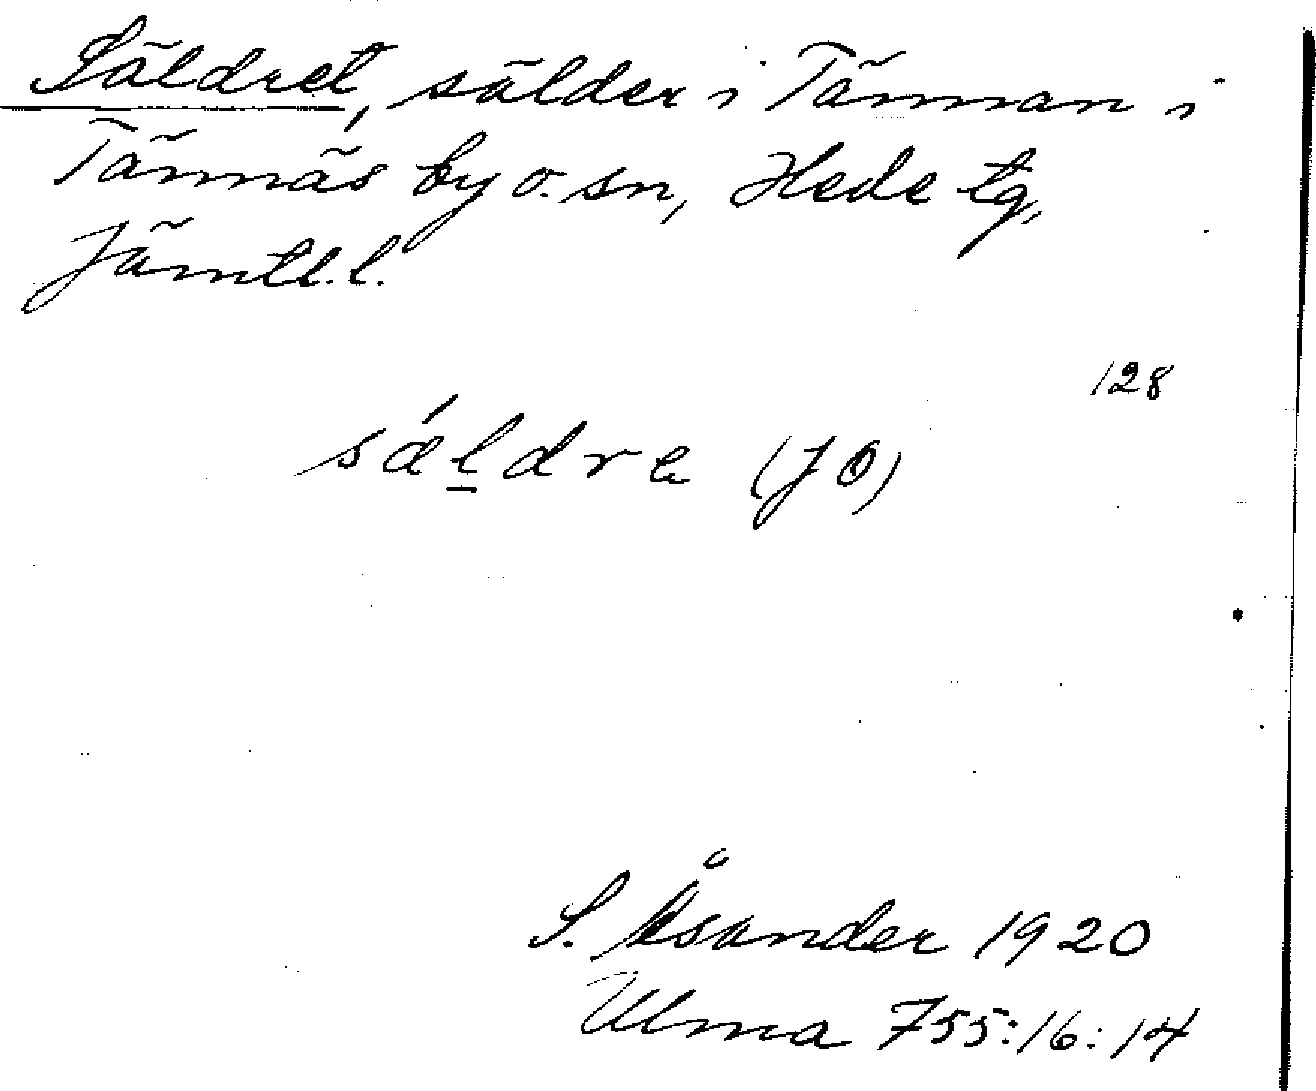 Säldret, sälder i Tännan i
Tännäs by o. sn, Hede tg,
Jämtl. l.
128
sǽl̲dre (JÖ)
S. Åsander 1920
Ulma 755:16:14